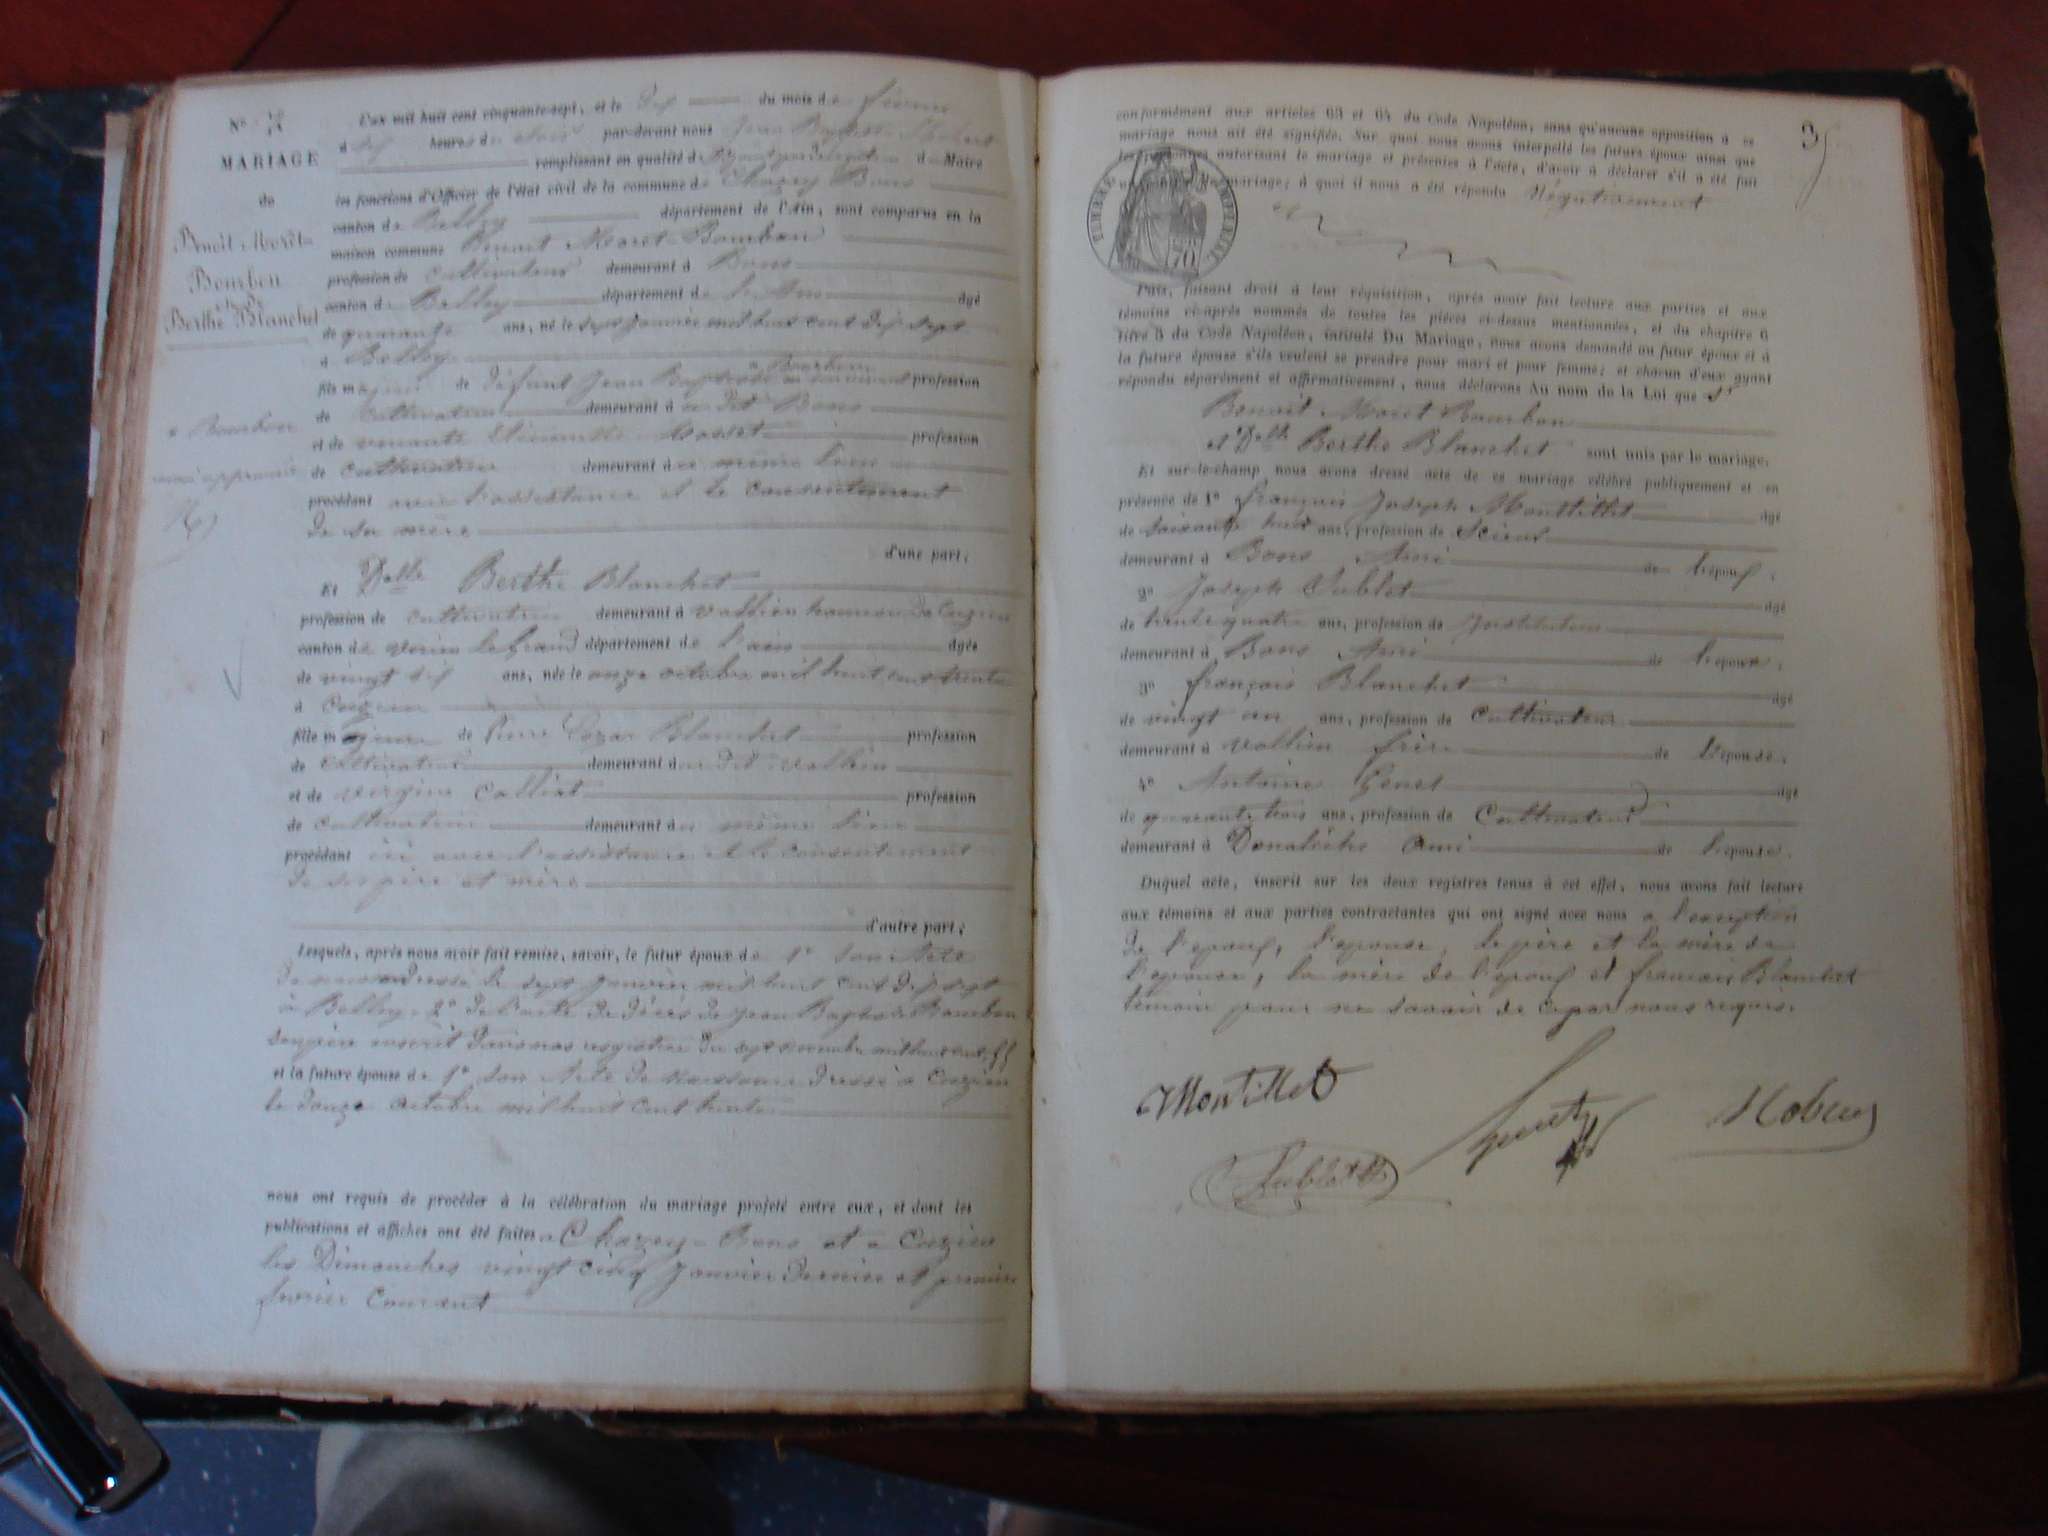 No
MARIAGE
de
Benoit Moret
Bourbon
et de
Berthe Blanchet
L'an mil huit cent cinquante-sept, et le dix du mois de février
à dix heures du soir par-devant nous Jean Baptiste
remplissant en qualité d' d Maire
les fonctions d'Officier de l'état civil de la commune de Chazey Bons
canton de Belley département de l'Ain, sont comparus en la
maison commune Benoit Moret Bourbon
profession de cultivateur demeurant à Bons
canton de Belley département de l'Ain âgé
de quarante ans, né le sept janvier mil huit cent dix sept
à Belley
fils majeur de défunt Jean Baptiste Bourbon profession
de cultivateur demeurant à dit Bons
+ Bourbon
et de vivante profession
de cultivatrice demeurant à ce même lieu
procédant avec l'assistance et le consentement
de sa mère
d'une part;
Et Delle Berthe Blanchet
profession de cultivatrice demeurant à hameau de Cuzieu
canton de Virieu le Grand département de l'ain âgée
de vingt six ans, née le onze octobre mil huit cent trente
à Cuzieu
fille majeure de Pierre Blanchet profession
de cultivateur demeurant à dit
et de profession
de cultivatrice demeurant à ce même lieu
procédant ici avec l'assistance et le consentement
de ses père et mère
d'autre part;
Lesquels, après nous avoir fait remise, savoir, le futur époux de 1° son Acte
de dressé le sept janvier mil huit cent dix sept
à Belley 2° de l'acte de décès de Jean Baptiste Bourbon
son père inscrit dans nos registres du
et la future épouse de 1° son Acte de naissance dressé à Cuzieu
le douze octobre mil huit cent trente
nous ont requis de procéder à la célébration du mariage projeté entre eux, et dont les
publications et affiches ont été faites à Chazey-Bons et à Cuzieu
les Dimanches vingt cinq janvier dernier et premier
février courant
conformément aux articles 63 et 64 du Code Napoléon, sans qu'aucune opposition à ce
mariage nous ait été signifiée. Sur quoi nous avons interpellé les futurs époux ainsi que
les autorisant le mariage et présentes à l'acte, d'avoir à déclarer s'il a été fait
mariage; à quoi il nous a été répondu Négativement
TIMBRE IMPERIAL
70
Puis, faisant droit à leur réquisition, après avoir fait lecture aux parties et aux
témoins ci-après nommés de toutes les pièces ci-dessus mentionnées, et du chapitre 6
titre 5 du Code Napoléon, intitulé Du Mariage, nous avons demandé au futur époux et à
la future épouse s'ils veulent se prendre pour mari et pour femme; et chacun d'eux ayant
répondu séparément et affirmativement, nous déclarons Au nom de la Loi que Sr
Benoit Moret Bourbon
et Delle Berthe Blanchet sont unis par le mariage.
Et sur-le-champ nous avons dressé acte de ce mariage célébré publiquement et en
présence de 1° françois Joseph Montillet âgé
de soixante huit ans, profession de
demeurant à Bons Ami de l'époux,
2° Joseph Cublet âgé
de trente quatre ans, profession de Instituteur
demeurant à Bons Ami de l'époux,
3° françois Blanchet âgé
de vingt un ans, profession de Cultivateur
demeurant à frère de l'épouse,
4° Antoine Genet âgé
de quarante trois ans, profession de Cultivateur
demeurant à Ami de l'épouse.
Duquel acte, inscrit sur les deux registres tenus à cet effet, nous avons fait lecture
aux témoins et aux parties contractantes qui ont signé avec nous à l'exception
de l'époux, l'épouse, le père et la mère de
l'épouse, la mère de l'époux et françois Blanchet
témoin pour ne savoir de ce par nous requis.
Montillet